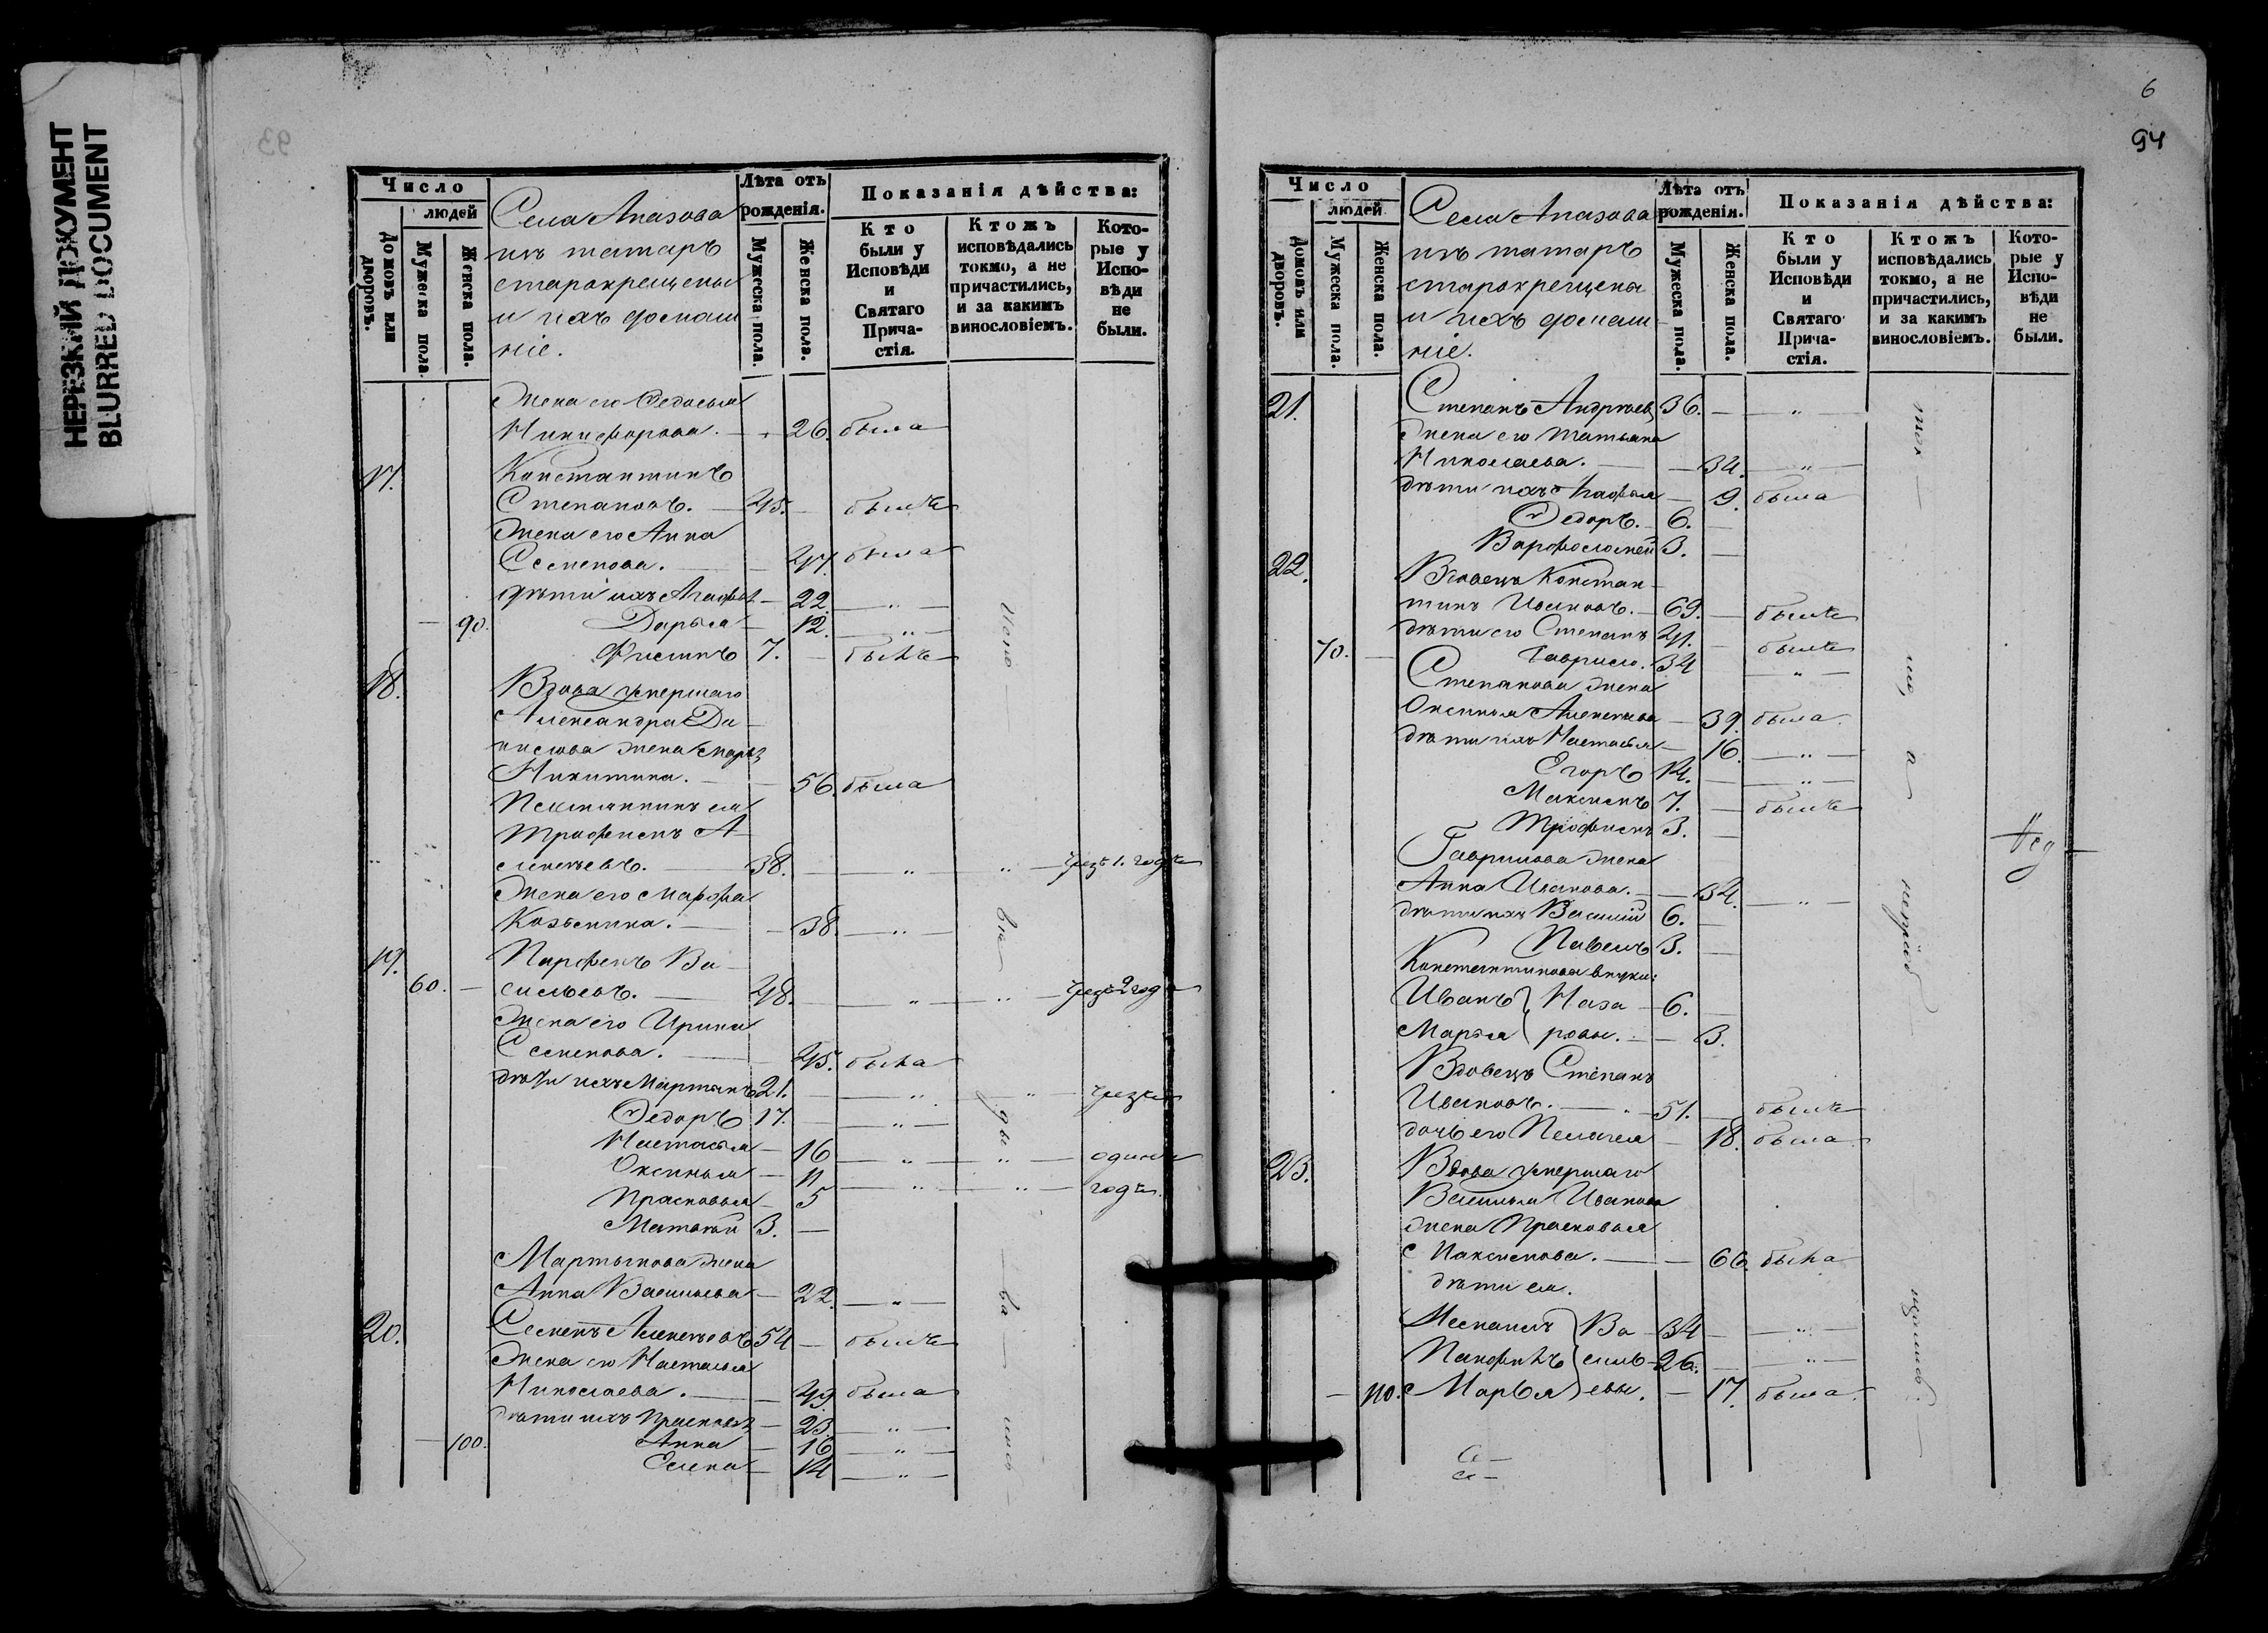 НЕРЕЗКИЙ ДОКУМЕНТ
BLURRED DOCUMENT
93
Число
людей
Домовъ или дворовъ.
Мужеска пола.
Женска пола.
Села Апазова
изъ татаръ
старокрещены
и ихъ домаш
ніе.
Лѣта отъ рожденія.
Мужеска пола.
Женска пола.
Показанія дѣйства:
Кто были у Исповѣди и Святаго Прича-стія.
Ктожъ исповѣдались токмо, а не причастились, и за какимъ винословіемъ.
Кото-рые у Испо-вѣди не были.
Жена его Ѳедосья
Никифорова. — 26. была
17. Константинъ
Степановъ. — 45. — былъ
Жена его Анна
Семенова. — 47. была
дѣти ихъ Агафья — 22. — „ —
90. Дарья — 12. — „ —
7. — былъ
18. Вдова умершаго
Александра Да-
нилова жена Марья
Никитина. — 56. была
Трофимъ А-
лексѣевъ. — 38. — „ — „ — чрезъ 1. годъ
Жена его Марфа
Козьмина. — 38. — „ —
19. Парфенъ Ва-
60. — сильевъ. — 48. — „ — „ — чрезъ 2 годъ
Жена его Ирина
Семенова. — 45. была
дѣти ихъ Мартынъ 21. — „ — „ — чрезъ
Ѳедоръ 17. — „ —
Настасья — 16 — „ — „ — одинъ
Оксинья — 11 — „ — „ — годъ.
Прасковья — 5
Матвѣй 3. —
Мартынова жена
Анна Васильева — 22. — „ —
20. Семенъ Алексѣевъ 54 — былъ
Жена его Настасья
Николаева. — 49. была
дѣти ихъ Прасковья — 23. — „ —
100. Анна — 16 — „ —
Елена — 14 — „ —
6
94
Число
людей
Домовъ или дворовъ.
Мужеска пола.
Женска пола.
Села Апазова
изъ татаръ
старокрещены
и ихъ домаш
ніе.
Лѣта отъ рожденія.
Мужеска пола.
Женска пола.
Показанія дѣйства:
Кто были у Исповѣди и Святаго Прича-стія.
Ктожъ исповѣдались токмо, а не причастились, и за какимъ винословіемъ.
Кото-рые у Испо-вѣди не были.
21. Степанъ Андреевъ 36. — „ —
Жена его Татьяна
Николаева. — 34. — „ —
дѣти ихъ Агафья — 9. была
Ѳедоръ. — 6. —
Варфоломей 3. —
22. Вдовецъ Констан-
тинъ Ивановъ. — 69. — былъ
дѣти его Степанъ 41. — былъ
70. — Гаврило. 34 — „ —
Степанова жена
Оксинья Алексѣева — 39. была.
дѣти ихъ Настасья — 16. — „ —
Егоръ 14. — „ —
Максимъ 7. — былъ
Трофимъ 3. —
Гаврилова жена
Анна Иванова. — 34. — „ —
дѣти ихъ Василій 6. —
Павелъ 3. —
Константинова внуки:
Иванъ } Наза — 6. —
Марья } ровы. — 3.
Вдовецъ Степанъ
Ивановъ. — 51. — былъ
дочь его Пелагея — 18. была.
23. Вдова умершаго
Василья Иванова
жена Прасковья
Максимова. — 66. была
дѣти ея.
Ва — 34 — „ —
силь — 26. — „ —
110. Марья } евы. — 17. была.